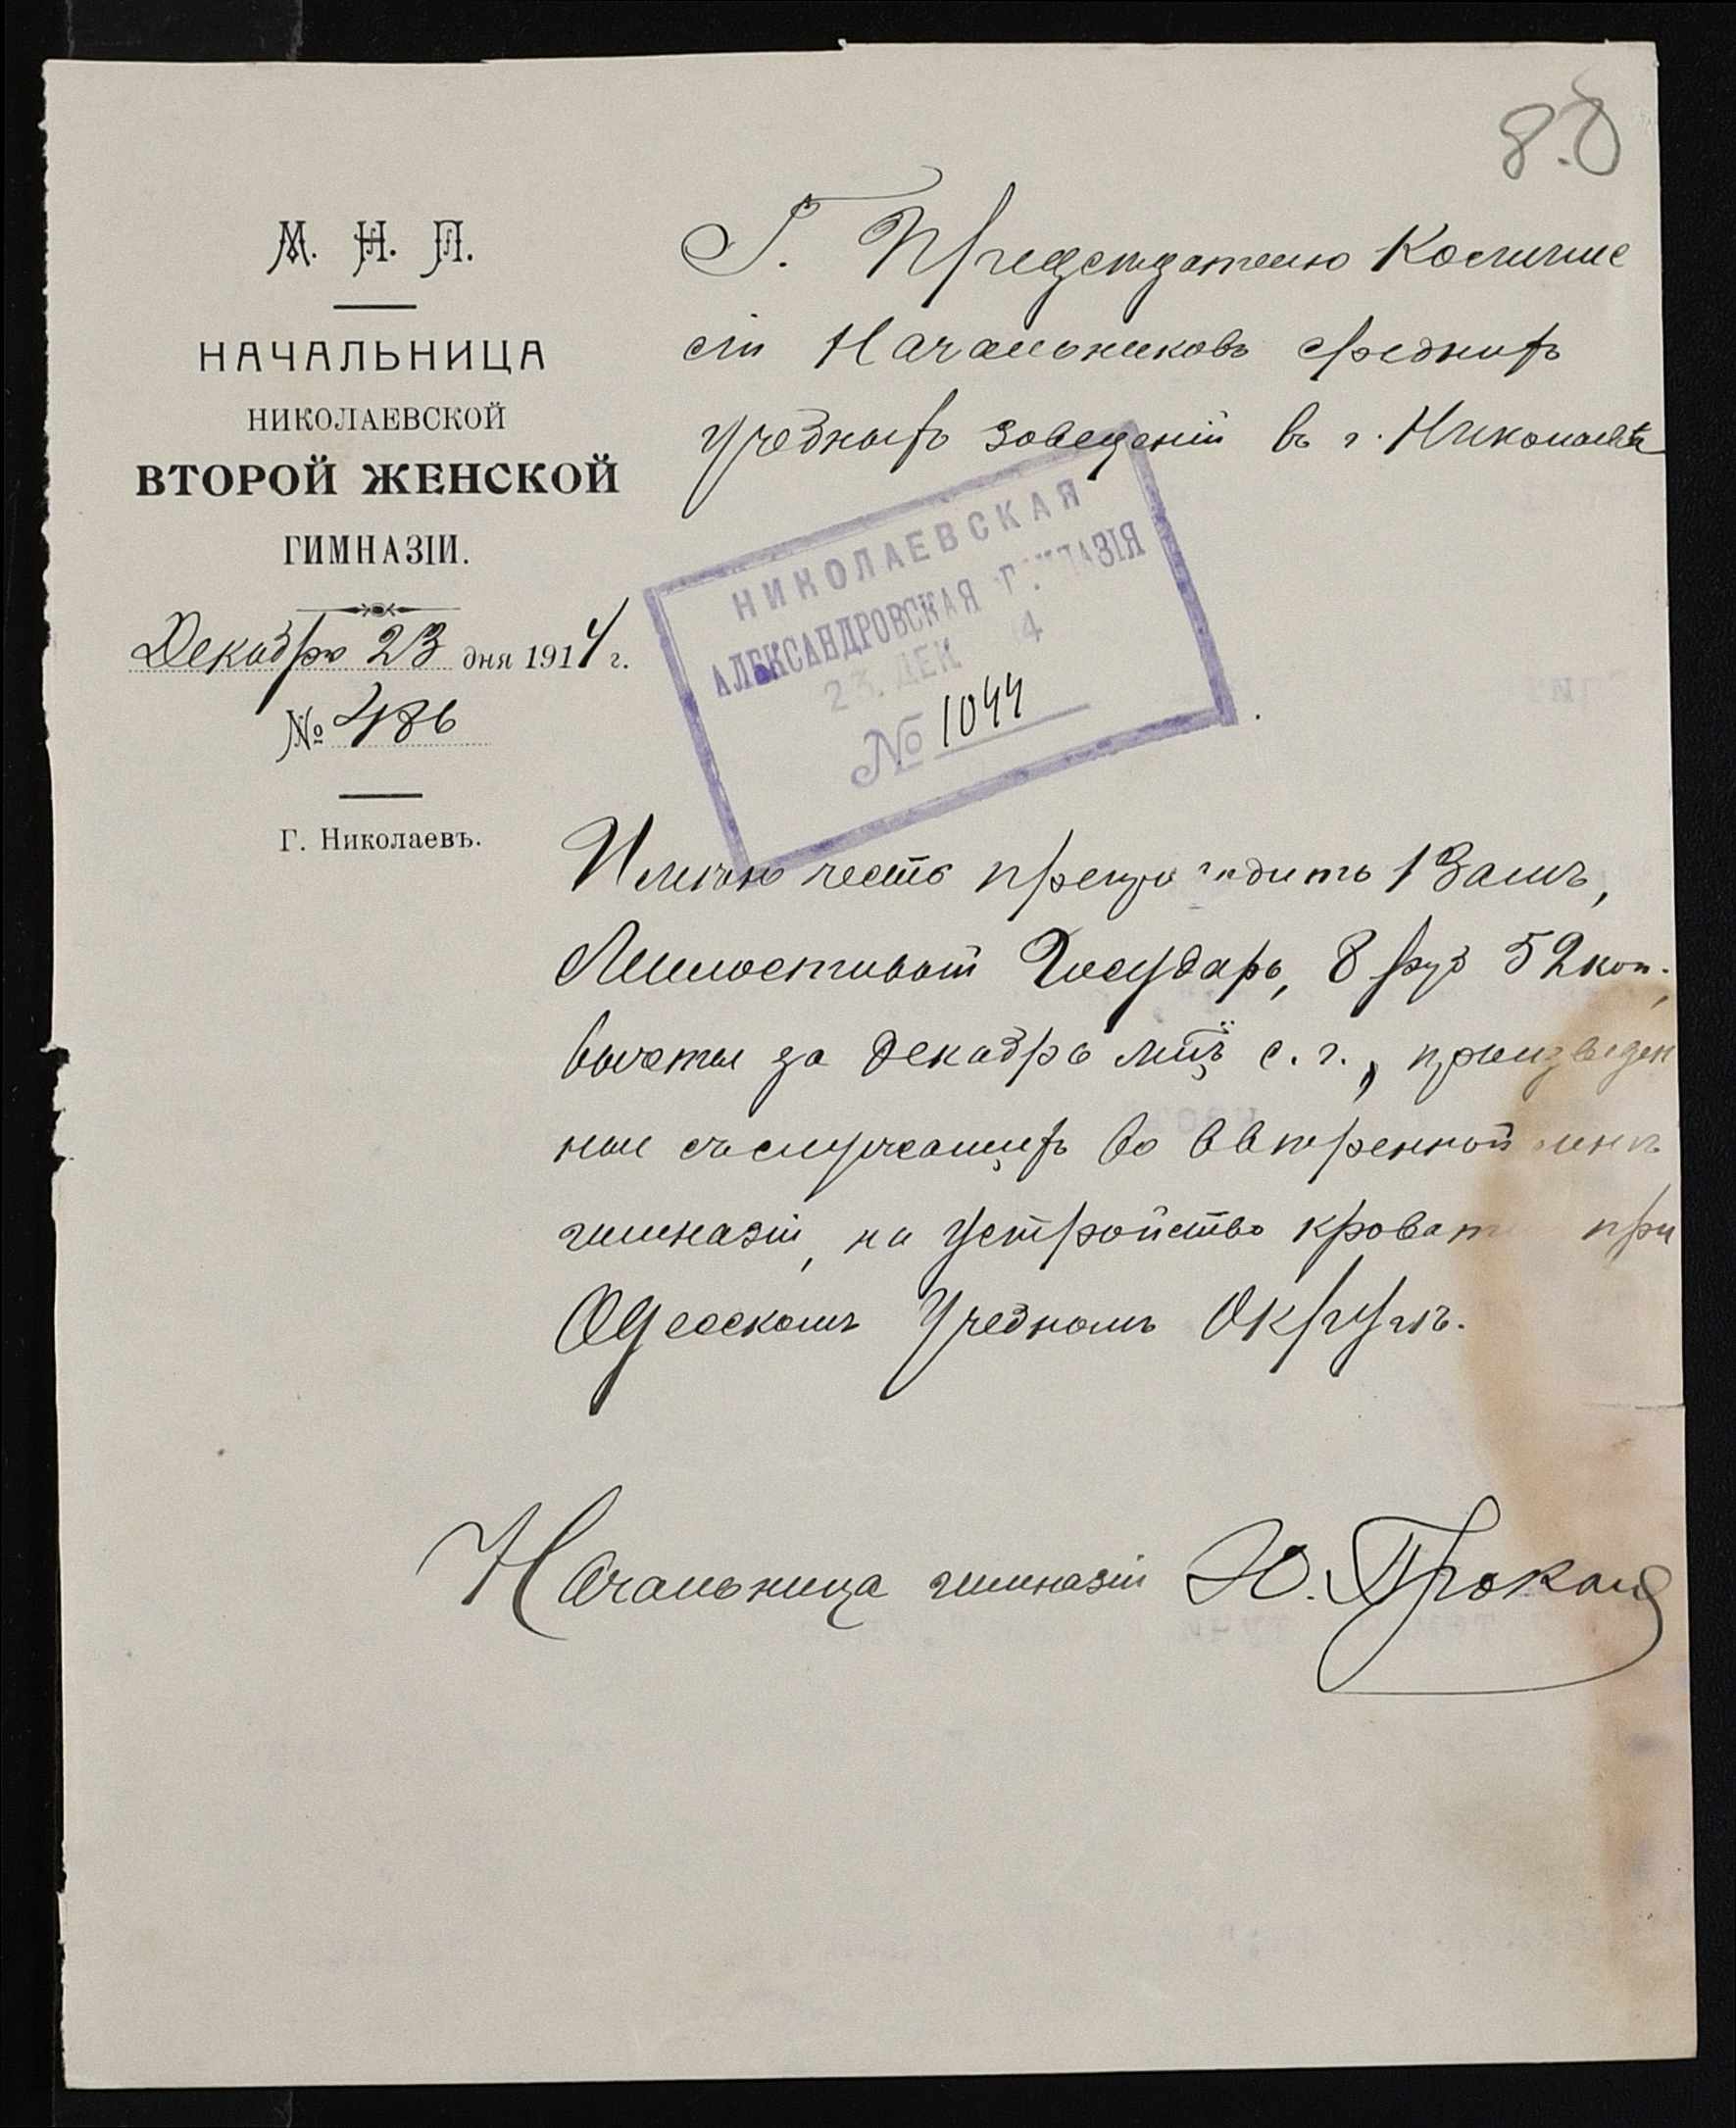 8.
М. Н. П.
НАЧАЛЬНИЦА
НИКОЛАЕВСКОЙ
ВТОРОЙ ЖЕНСКОЙ
ГИМНАЗІИ.
Декабря 23 дня 1914 г.
№ 486
Г. Николаевъ.
Г. Председателю Комmис
сіи Начальниковъ среднихъ
учебныхъ заведеній въ г. Николаевѣ
НИКОЛАЕВСКАЯ
АЛЕКСАНДРОВСКАЯ ГИМНАЗІЯ
23. ДЕК 4
№ 1044
Имѣю честь препроводить Вамъ,
Милостивый Государь, 8 руб 52 коп.,
вычеты за декабрь мцъ с. г., произведен
ные съ служащихъ во ввѣренной мнѣ
гимназіи, на устройство кровати при
Одесскомъ Учебномъ Округѣ.
Начальница гимназіи Ю.